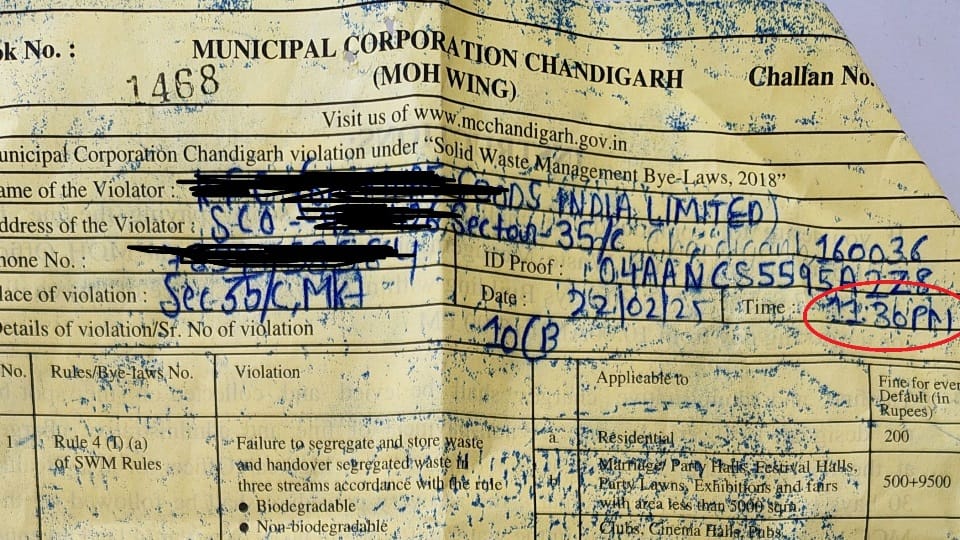 ok No. :
MUNICIPAL CORPORATION CHANDIGARH
Challan No.
1468
(MOH WING)
Visit us of www.mcchandigarh.gov.in
unicipal Corporation Chandigarh violation under “Solid Waste Management Bye-Laws, 2018”
ame of the Violator : OODS INDIA LIMITED)
ddress of the Violator : SCO - Sector-35/c Chandigarh 160036
hone No. :
ID Proof : 04AANCS5595
lace of violation : Sec 35/C, Mkt
Date : 22/02/25
Time : 11:36PM
Details of violation/Sr. No of violation
10(B
No.
Rules/Bye-laws No.
Violation
Applicable to
Fine for ever
Default (in
Rupees)
1
Rule 4 (1) (a)
of SWM Rules
Failure to segregate and store waste
and handover segregated waste in
three streams accordance with the rule
● Biodegradable
● Non-biodegradable
a
Residential
200
b
Marriage/ Party Halls, Festival Halls,
Party Lawns, Exhibitions and fairs
with area less than 5000 sqm.
500+9500
Clubs, Cinema Halls, Pubs,